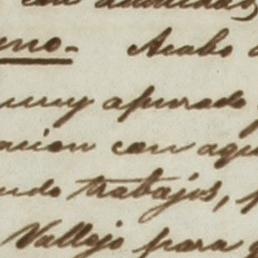 con
no. Acabo
muy apurado
acion con aqu
ndo trabajos,
Vallejo para